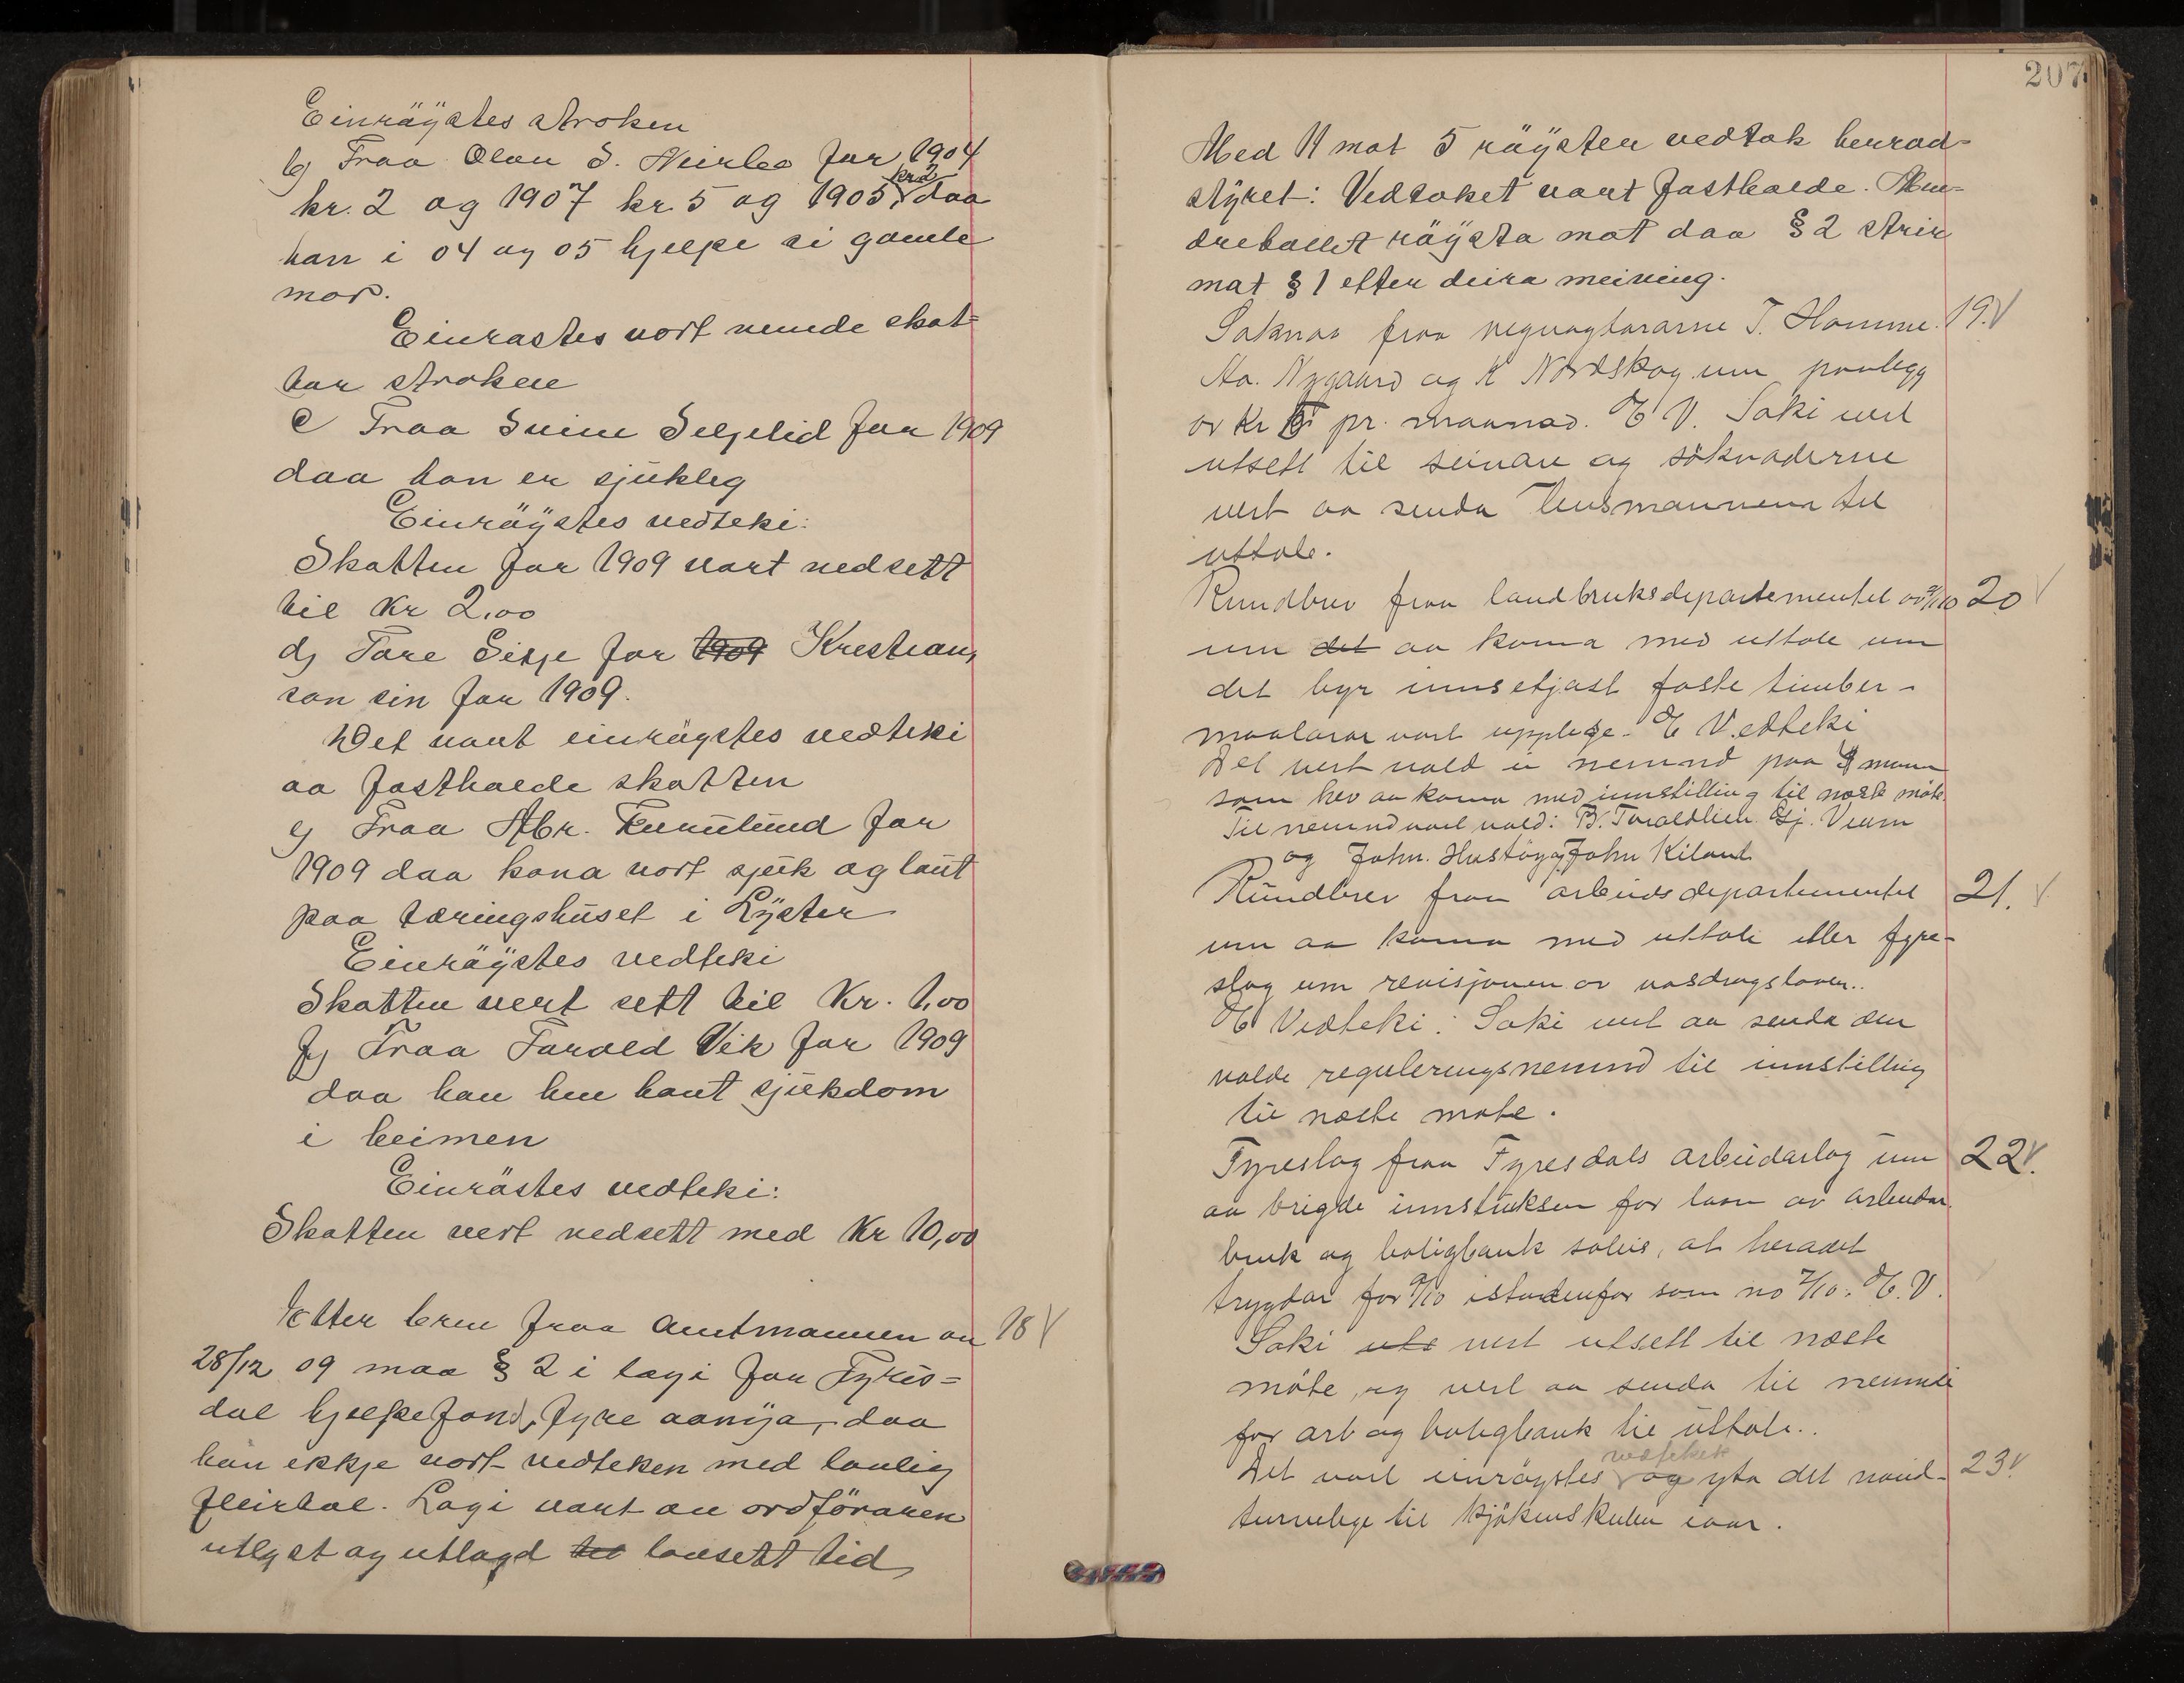 Einräystes stroken
b) Fraa Olav S. Veirlee for 1904
kr. 2 og 1907 kr. 5 og 1905 kr 2 daa
han i 04 og 05 hjelpe si gamle
mor.
Einrøstes vort nemde skat-
tar strokne
c Fraa Svein Seljelid for 1909
daa han er sjukleg
Einräystes vedteki:
Skatten for 1909 vart nedsett
til Kr 2,00
d) Tore Sisje for 1909 Krestian,
son sin for 1909.
Det vart einräystes vedteki
aa fasthalde skatten
e) Fraa Abr. for
1909 daa kona vort sjuk og laut
paa tæringshuset i Lyster
Einräystes vedteki
Skatten vert sett til Kr. 1,00
f) Fraa Tarald Vik for 1909
daa han hev havt sjukdom
i heimen
Einröstes vedteki:
Skatten vert nedsett med Kr 10,00
Etter brev fraa amtmannen av 18 V
28/12 09 maa § 2 i lagi for Fyres-
dal hjelpefond, fyre aanyja, daa
han ekkje vort vedteken med lovlig
fleirtal. Lagi vart av ordföraren
utlyst og utlagd til lovsett tid
207
Med 11 mot 5 räyster vedtok herad-
styret: Vedtoket vart fasthalde. Min-
dretallet räysta mot daa § 2 strir
mot § 1 etter deira meining.
Söknar fraa vegvagtararne T. Homme. 19. V
Aa. Nygaard og K Nordskog um paalegg
av Kr pr. maanad. E V. Saki vert
utsett til seinare og söknaderne
vert aa senda lensmannen til
uttale.
Rundbrev fraa landbruksdepartementet 20 V
um det aa koma med uttale um
det byr innsetjast faste timber-
maalarar vart upplese. E Vedteki
Det vert vald ei nemnd paa 4 mann
som hev aa koma med innstilling til næste möte.
Til nemnd vart vald: B. Taraldlien Gj. Veum
og John. Hustöyg John Kiland
Rundbrev fraa arbeidsdepartementet 21. V
um aa koma med uttale eller fyre-
slag um revisjonen av vasdragsloven..
E Vedteki: Saki vert aa senda den
valde reguleringsnemnd til innstilling
til næste møte.
Fyreslag fraa Fyresdals arbeidarlag um 22 V.
aa brigde innstruksen for laan av arbeidar.
bruk og boligbank soleis, at heradet
trygdar for 9/10 istadenfor som no 7/10. E. V.
Saki uts vert utsett til næste
möte, og vert aa senda til nemndi
for arb og boligbank til uttale..
vedteket
Det vart einröystes og yta det naud- 23 V
turvelege til kjökenskulen iaar.